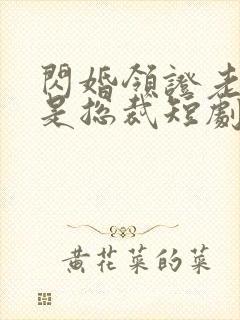 閃婚領證老
是總裁短劇
黃花菜的菜